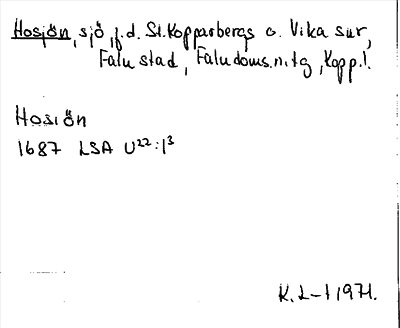 Hosjön, sjö, f.d. St. Kopparbergs o. Vika snr,
Falu stad, Faludoms.n.tg, Kopp.l.
Hosiön
1687 LSA U22:13
K.L-t 1971.